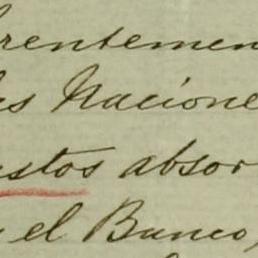 rentemen
as Nacione
estos absor
y el Banco,